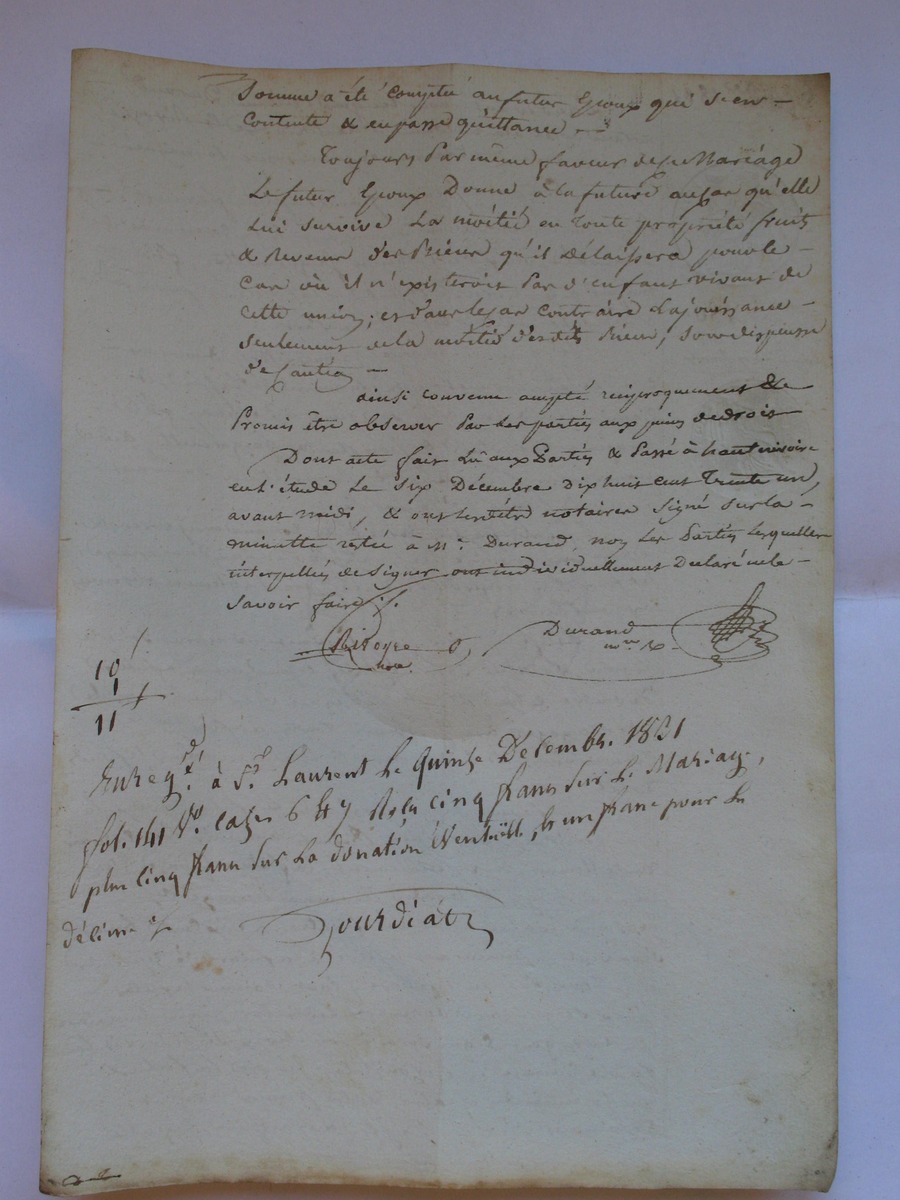 Somme a été comptée au futur Epoux qui s'en
contente & en passe quittance
Toujours Par même faveur de ce Mariage
Le futur Epoux Donne à la future au cas qu'elle
lui survive La moitié en toute propriété fruits
& Revenus des Biens qu'il Délaissera pour le
Cas où il n'existeroit Pas d'enfant vivant de
cette union; et dans le cas contraire La jouissance
seulement de la moitié desdits Biens, sous dispense
de Caution
ainsi convenu accepté reciproquement &
Promis être observer Par Les parties aux peines de droit
Dont acte fait Lu aux Parties & Passé à hauterivoire
en L'étude Le six Décembre Dix huit cent Trente un,
avant midi, & ont notaires signé sur la
minutte restée à Mr. Durand, non Les Parties Lesquelles
interpellées de signer ont individuellement Declaré ne le
savoir faire /.
Rivoyre Durand
nore
10
1
11
Enregré. à St. Laurent Le Quinze Décembre. 1831
fol. 141 Vo. cases 6 et 7 Reçu cinq francs sur Le Mariage,
plus cinq francs sur La donation éventuelle, et un franc pour Le
décime
Jourdiat